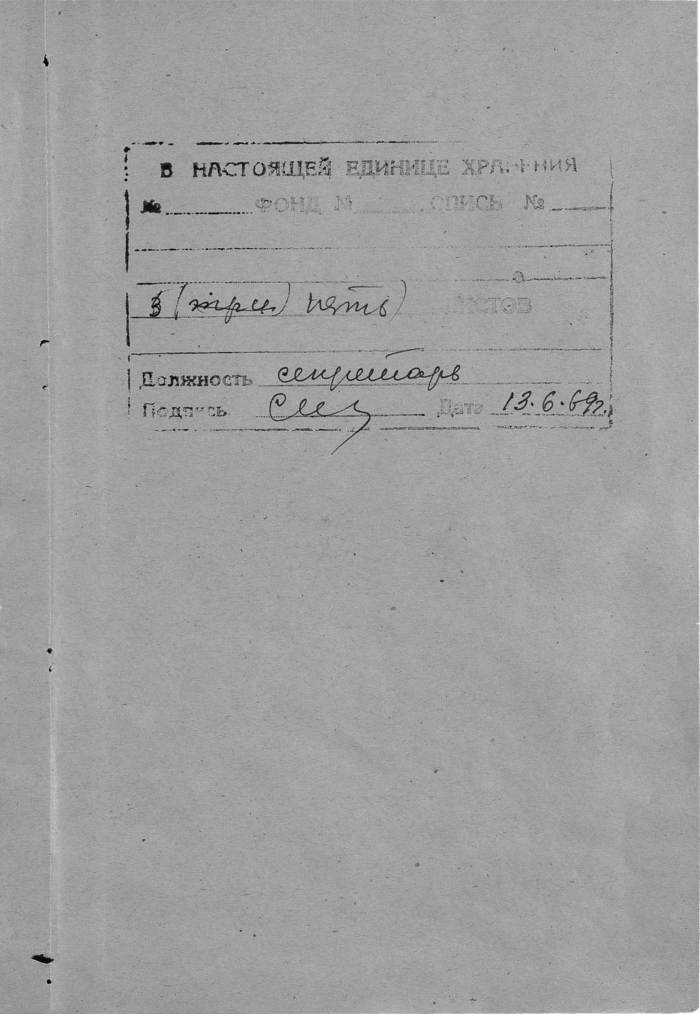 В НАСТОЯЩЕЙ ЕДИНИЦЕ ХРАНЕНИЯ
№ ФОНД № ОПИСЬ №
(три) пять) ЛИСТОВ
Должность секретарь
Подпись Дата 13.6.69г.